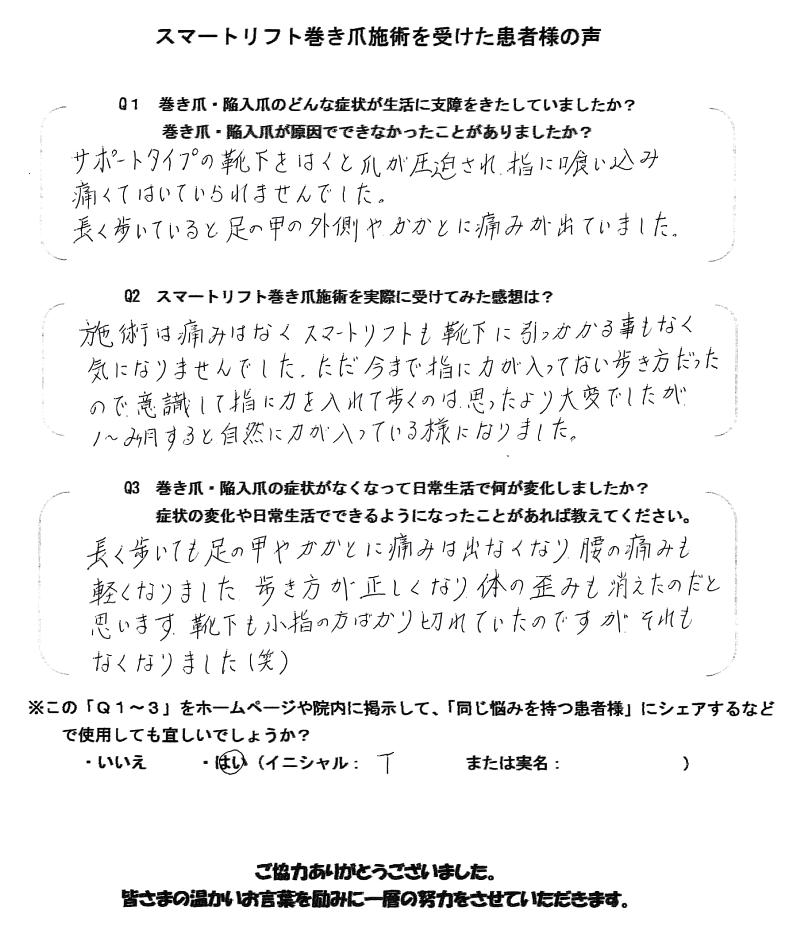 スマートリフト巻き爪施術を受けた患者様の声
Q1 巻き爪・陥入爪のどんな症状が生活に支障をきたしていましたか？
巻き爪・陥入爪が原因でできなかったことがありましたか？
サポートタイプの靴下をはくと爪が圧迫され、指に喰い込み
痛くてはいていられませんでした。
長く歩いていると足の甲の外側やかかとに痛みが出ていました。
Q2 スマートリフト巻き爪施術を実際に受けてみた感想は？
施術は痛みはなくスマートリフトも靴下に引っかかる事もなく
気になりませんでした。ただ今まで指に力が入ってない歩き方だった
ので意識して指に力を入れて歩くのは思ったより大変でしたが
1〜2ヶ月すると自然に力が入っている様になりました。
Q3 巻き爪・陥入爪の症状がなくなって日常生活で何が変化しましたか？
症状の変化や日常生活でできるようになったことがあれば教えてください。
長く歩いても足の甲やかかとに痛みは出なくなり、腰の痛みも
軽くなりました 歩き方が正しくなり、体の歪みも消えたのだと
思います。靴下も小指の方ばかり切れていたのですが、それも
なくなりました(笑)
※この「Q１〜３」をホームページや院内に掲示して、「同じ悩みを持つ患者様」にシェアするなど
で使用しても宜しいでしょうか？
・いいえ ・はい（イニシャル： T または実名： ）
ご協力ありがとうございました。
皆さまの温かいお言葉を励みに一層の努力をさせていただきます。